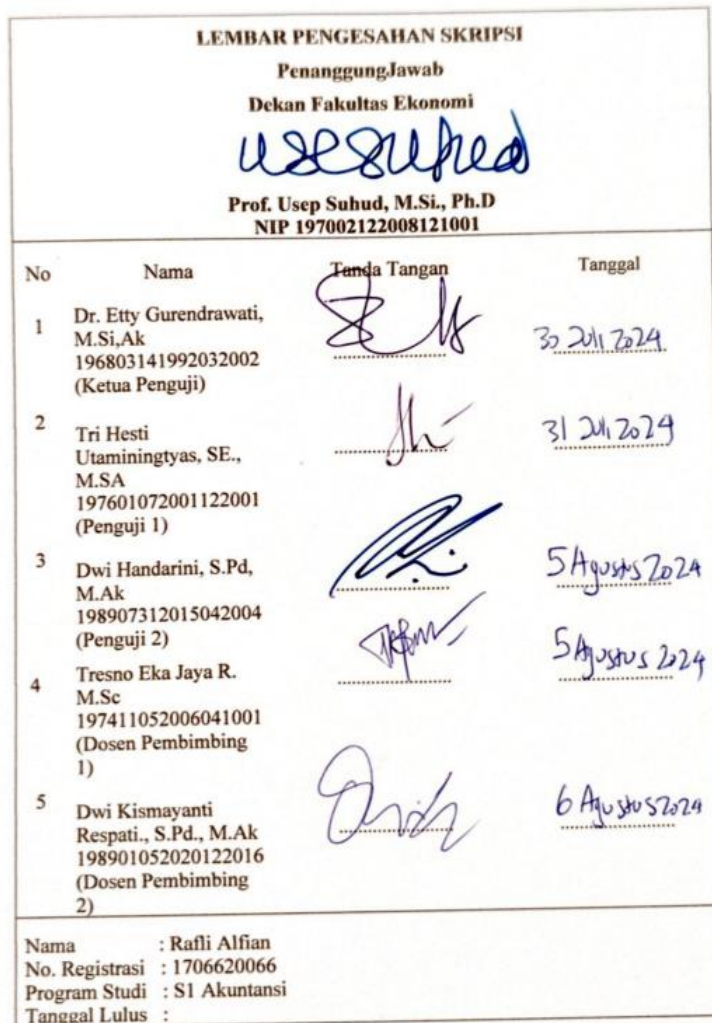 LEMBAR PENGESAHAN SKRIPSI
PenanggungJawab
Dekan Fakultas Ekonomi
Prof. Usep Suhud, M.Si., Ph.D
NIP 197002122008121001
No Nama Tanda Tangan Tanggal
1 Dr. Etty Gurendrawati,
M.Si,Ak
196803141992032002
(Ketua Penguji)
30 Juli 2024
2 Tri Hesti
Utaminingtyas, SE.,
M.SA
197601072001122001
(Penguji 1)
31 Juli 2024
3 Dwi Handarini, S.Pd,
M.Ak
198907312015042004
(Penguji 2)
5 Agustus 2024
4 Tresno Eka Jaya R.
M.Sc
197411052006041001
(Dosen Pembimbing
1)
5 Agustus 2024
5 Dwi Kismayanti
Respati., S.Pd., M.Ak
198901052020122016
(Dosen Pembimbing
2)
6 Agustus 2024
Nama : Rafli Alfian
No. Registrasi : 1706620066
Program Studi : S1 Akuntansi
Tanggal Lulus :